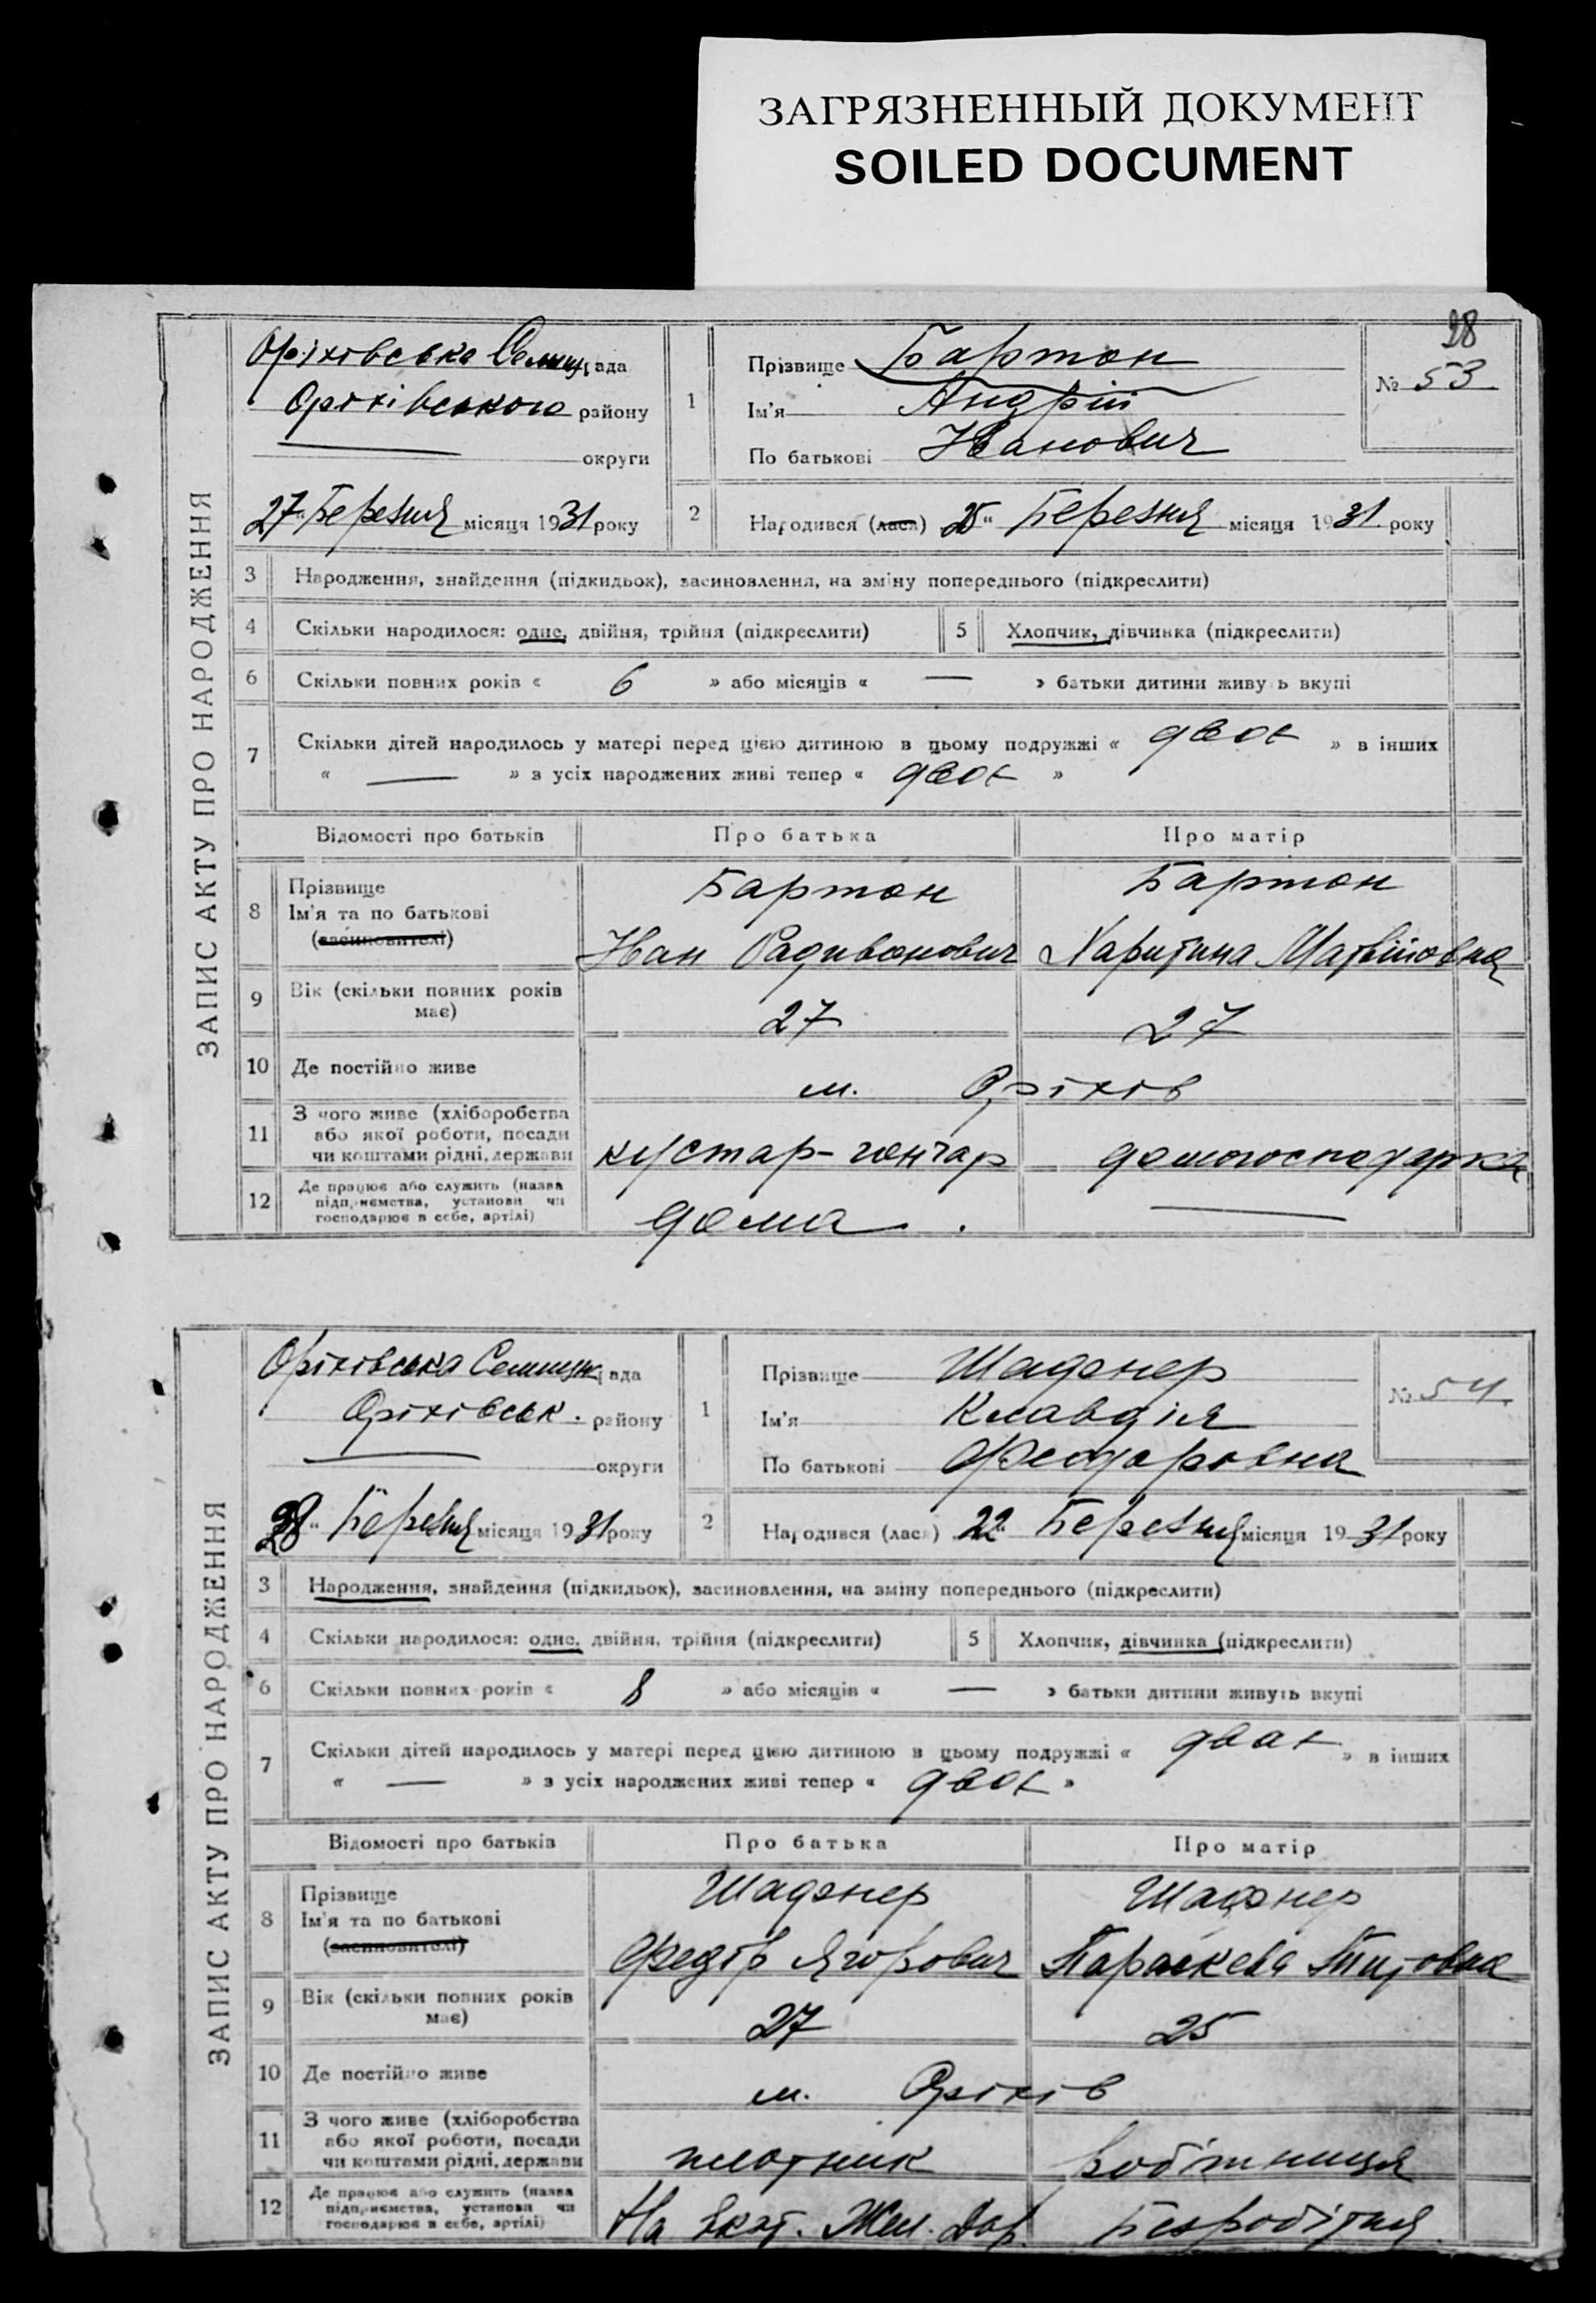 ЗАГРЯЗНЕННЫЙ ДОКУМЕНТ
SOILED DOCUMENT
28
ЗАПИС АКТУ ПРО НАРОДЖЕННЯ
Оріхівська Селищ рада
Оріхівського району
округи
27 Березня місяця 1931 року
1
Прізвище Бартон
Ім'я Андрій
По батькові Іванович
№ 53
2
Народився (лася) 25 Березня місяця 1931 року
3 Народження, знайдення (підкидьок), засиновлення, на зміну попереднього (підкреслити)
4 Скільки народилося: одне, двійня, трійня (підкреслити) 5 Хлопчик, дівчинка (підкреслити)
6 Скільки повних років « 6 » або місяців « — » батьки дитини живуть вкупі
7 Скільки дітей народилось у матері перед цією дитиною в цьому подружжі « двох » в інших
« — » з усіх народжених живі тепер « двох »
Відомості про батьків Про батька Про матір
8 Прізвище Бартон Бартон
Ім'я та по батькові
(засиновителі) Іван Радивонович Харитина Матвіївна
9 Вік (скільки повних років має) 27 27
10 Де постійно живе м. Оріхів
11 З чого живе (хліборобства
або якої роботи, посади
чи коштами рідні, держави кустар-гончар домогосподарка
12 Де працює або служить (назва
підприємства, установи чи
господарює в себе, артілі) дома —
ЗАПИС АКТУ ПРО НАРОДЖЕННЯ
Оріхівська Селищн рада
Оріхівськ. району
округи
28 Березня місяця 1931 року
1
Прізвище Шадонер
Ім'я Клавдія
По батькові Феодоровна
№ 54
2
Народився (лася) 22 Березня місяця 1931 року
3 Народження, знайдення (підкидьок), засиновлення, на зміну попереднього (підкреслити)
4 Скільки народилося: одне, двійня, трійня (підкреслити) 5 Хлопчик, дівчинка (підкреслити)
6 Скільки повних років « 8 » або місяців « — » батьки дитини живуть вкупі
7 Скільки дітей народилось у матері перед цією дитиною в цьому подружжі « двох » в інших
« — » з усіх народжених живі тепер « двох »
Відомості про батьків Про батька Про матір
8 Прізвище Шадонер Шадонер
Ім'я та по батькові
(засиновителі) Федір Ягорович Параскева Титовна
9 Вік (скільки повних років має) 27 25
10 Де постійно живе м. Оріхів
11 З чого живе (хліборобства
або якої роботи, посади
чи коштами рідні, держави плотник робітниця
12 Де працює або служить (назва
підприємства, установи чи
господарює в себе, артілі) На Екат. Жел. Дор. Безробітня